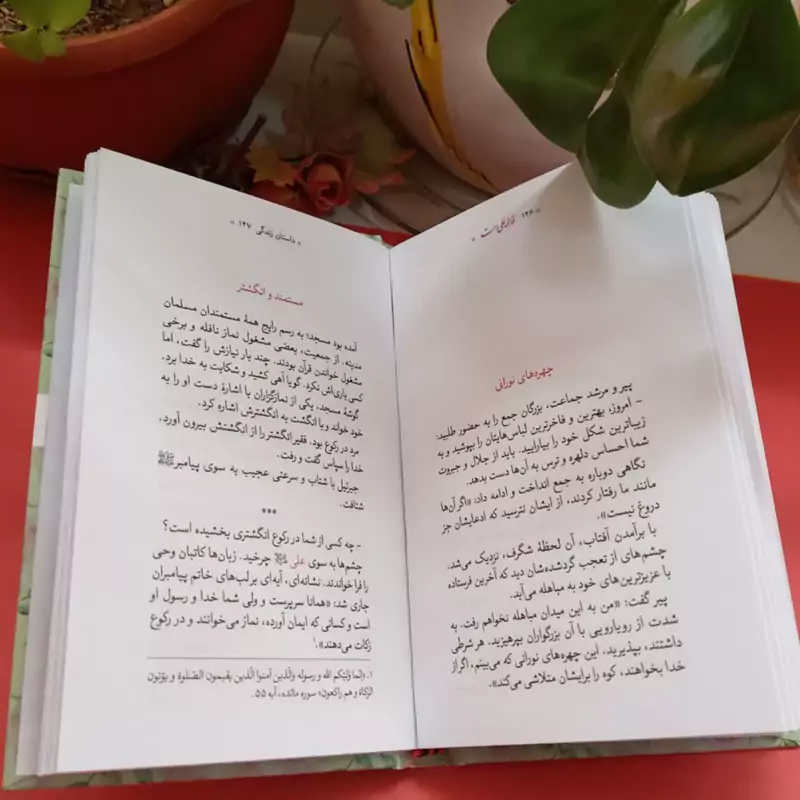 * ۱۲۶
چهره‌های نورانی
پیر و مرشد جماعت، بزرگان جمع را به حضور طلبید:
– امروز، بهترین و فاخرترین لباس‌هایتان را بپوشید و به
زیباترین شکل خود را بیارایید. باید از جلال و جبروت
شما احساس دلهره و ترس به آن‌ها دست بدهد.
نگاهی دوباره به جمع انداخت و ادامه داد: «اگر آن‌ها
مانند ما رفتار کردند، از ایشان نترسید که ادعایشان جز
دروغ نیست».
با برآمدن آفتاب، آن لحظهٔ شگرف، نزدیک می‌شد.
چشم‌های از تعجب گردشده‌شان دید که آخرین فرستاده
با عزیزترین‌های خود به مباهله می‌آید.
پیر گفت: «من به این میدان مباهله نخواهم رفت. به
شدت از رویارویی با آن بزرگواران بپرهیزید. هر شرطی
داشتند، بپذیرید. این چهره‌های نورانی که می‌بینم، اگر از
خدا بخواهند، کوه را برایشان متلاشی می‌کند».
* داستان زندگی ۱۲۷ *
مستمند و انگشتر
آمده بود مسجد؛ به رسم رایج همهٔ مستمندان مسلمان
مدینه. از جمعیت، بعضی مشغول نماز نافله و برخی
مشغول خواندن قرآن بودند. چند بار نیازش را گفت، اما
کسی یاری‌اش نکرد. گویا آهی کشید و شکایت به خدا برد.
گوشهٔ مسجد، یکی از نمازگزاران با اشارهٔ دست او را به
خود خواند و با انگشت به انگشترش اشاره کرد.
مرد در رکوع بود. فقیر انگشتر را از انگشتش بیرون آورد.
خدا را سپاس گفت و رفت.
جبرئیل با شتاب و سرعتی عجیب به سوی پیامبر ﷺ
شتافت.
***
– چه کسی از شما در رکوع انگشتری بخشیده است؟
چشم‌ها به سوی علی چرخید. زبان‌ها کاتبان وحی
را فراخواندند. نشانه‌ای، آیه‌ای بر لب‌های خاتم پیامبران
جاری شد: «همانا سرپرست و ولی شما خدا و رسول او
است و کسانی که ایمان آورده، نماز می‌خوانند و در رکوع
زکات می‌دهند».۱
۱. «انّما ولیّکم الله و رسوله والّذین آمنوا الّذین یقیمون الصّلوة و یؤتون
الزّکاة و هم راکعون» سوره مائده، آیه ۵۵.